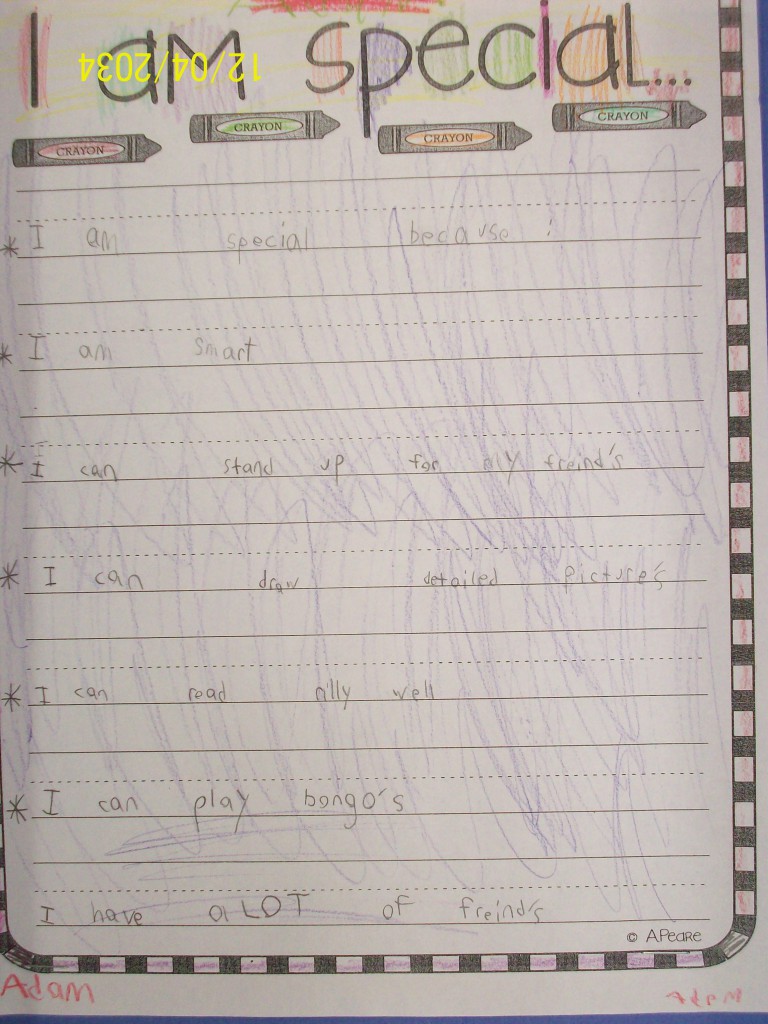 I am special...
12/04/2034
CRAYON CRAYON CRAYON CRAYON
* I am special because :
* I am smart
* I can stand up for my freind's
* I can draw detailed picture's
* I can read rilly well
* I can play bongo's
I have a LOT of freind's
© APeare
Adam Adam